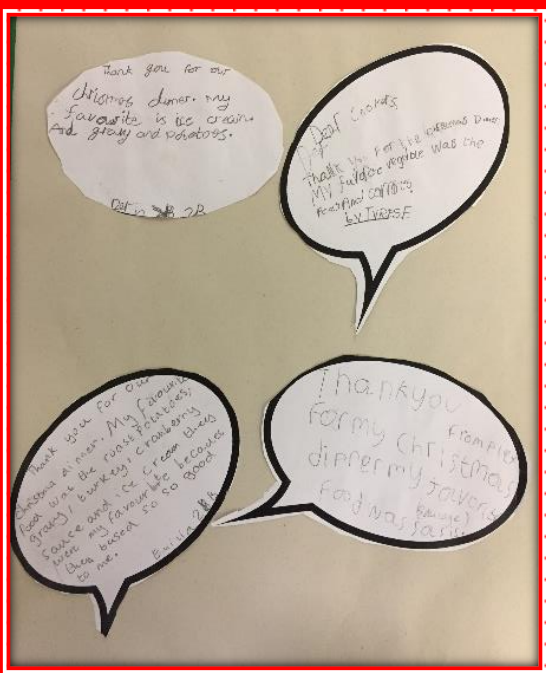 Thank you for our
christmas dinner. my
favourite is ice cream.
And gravy and potatoes.
2B
Dear Cookers
thank you For the Dinner.
My vegetable was the
Peas And
by TYRESE
Thank you for our
christmas dinner. My favourite
food was the roast potatoes,
gravy, turkey, cranberry
sauce and ice cream they
were my favourite becaues
they so so good
to me.
Thankyou
from
for my Christmas
dinner my favorite
food was
(sausage)